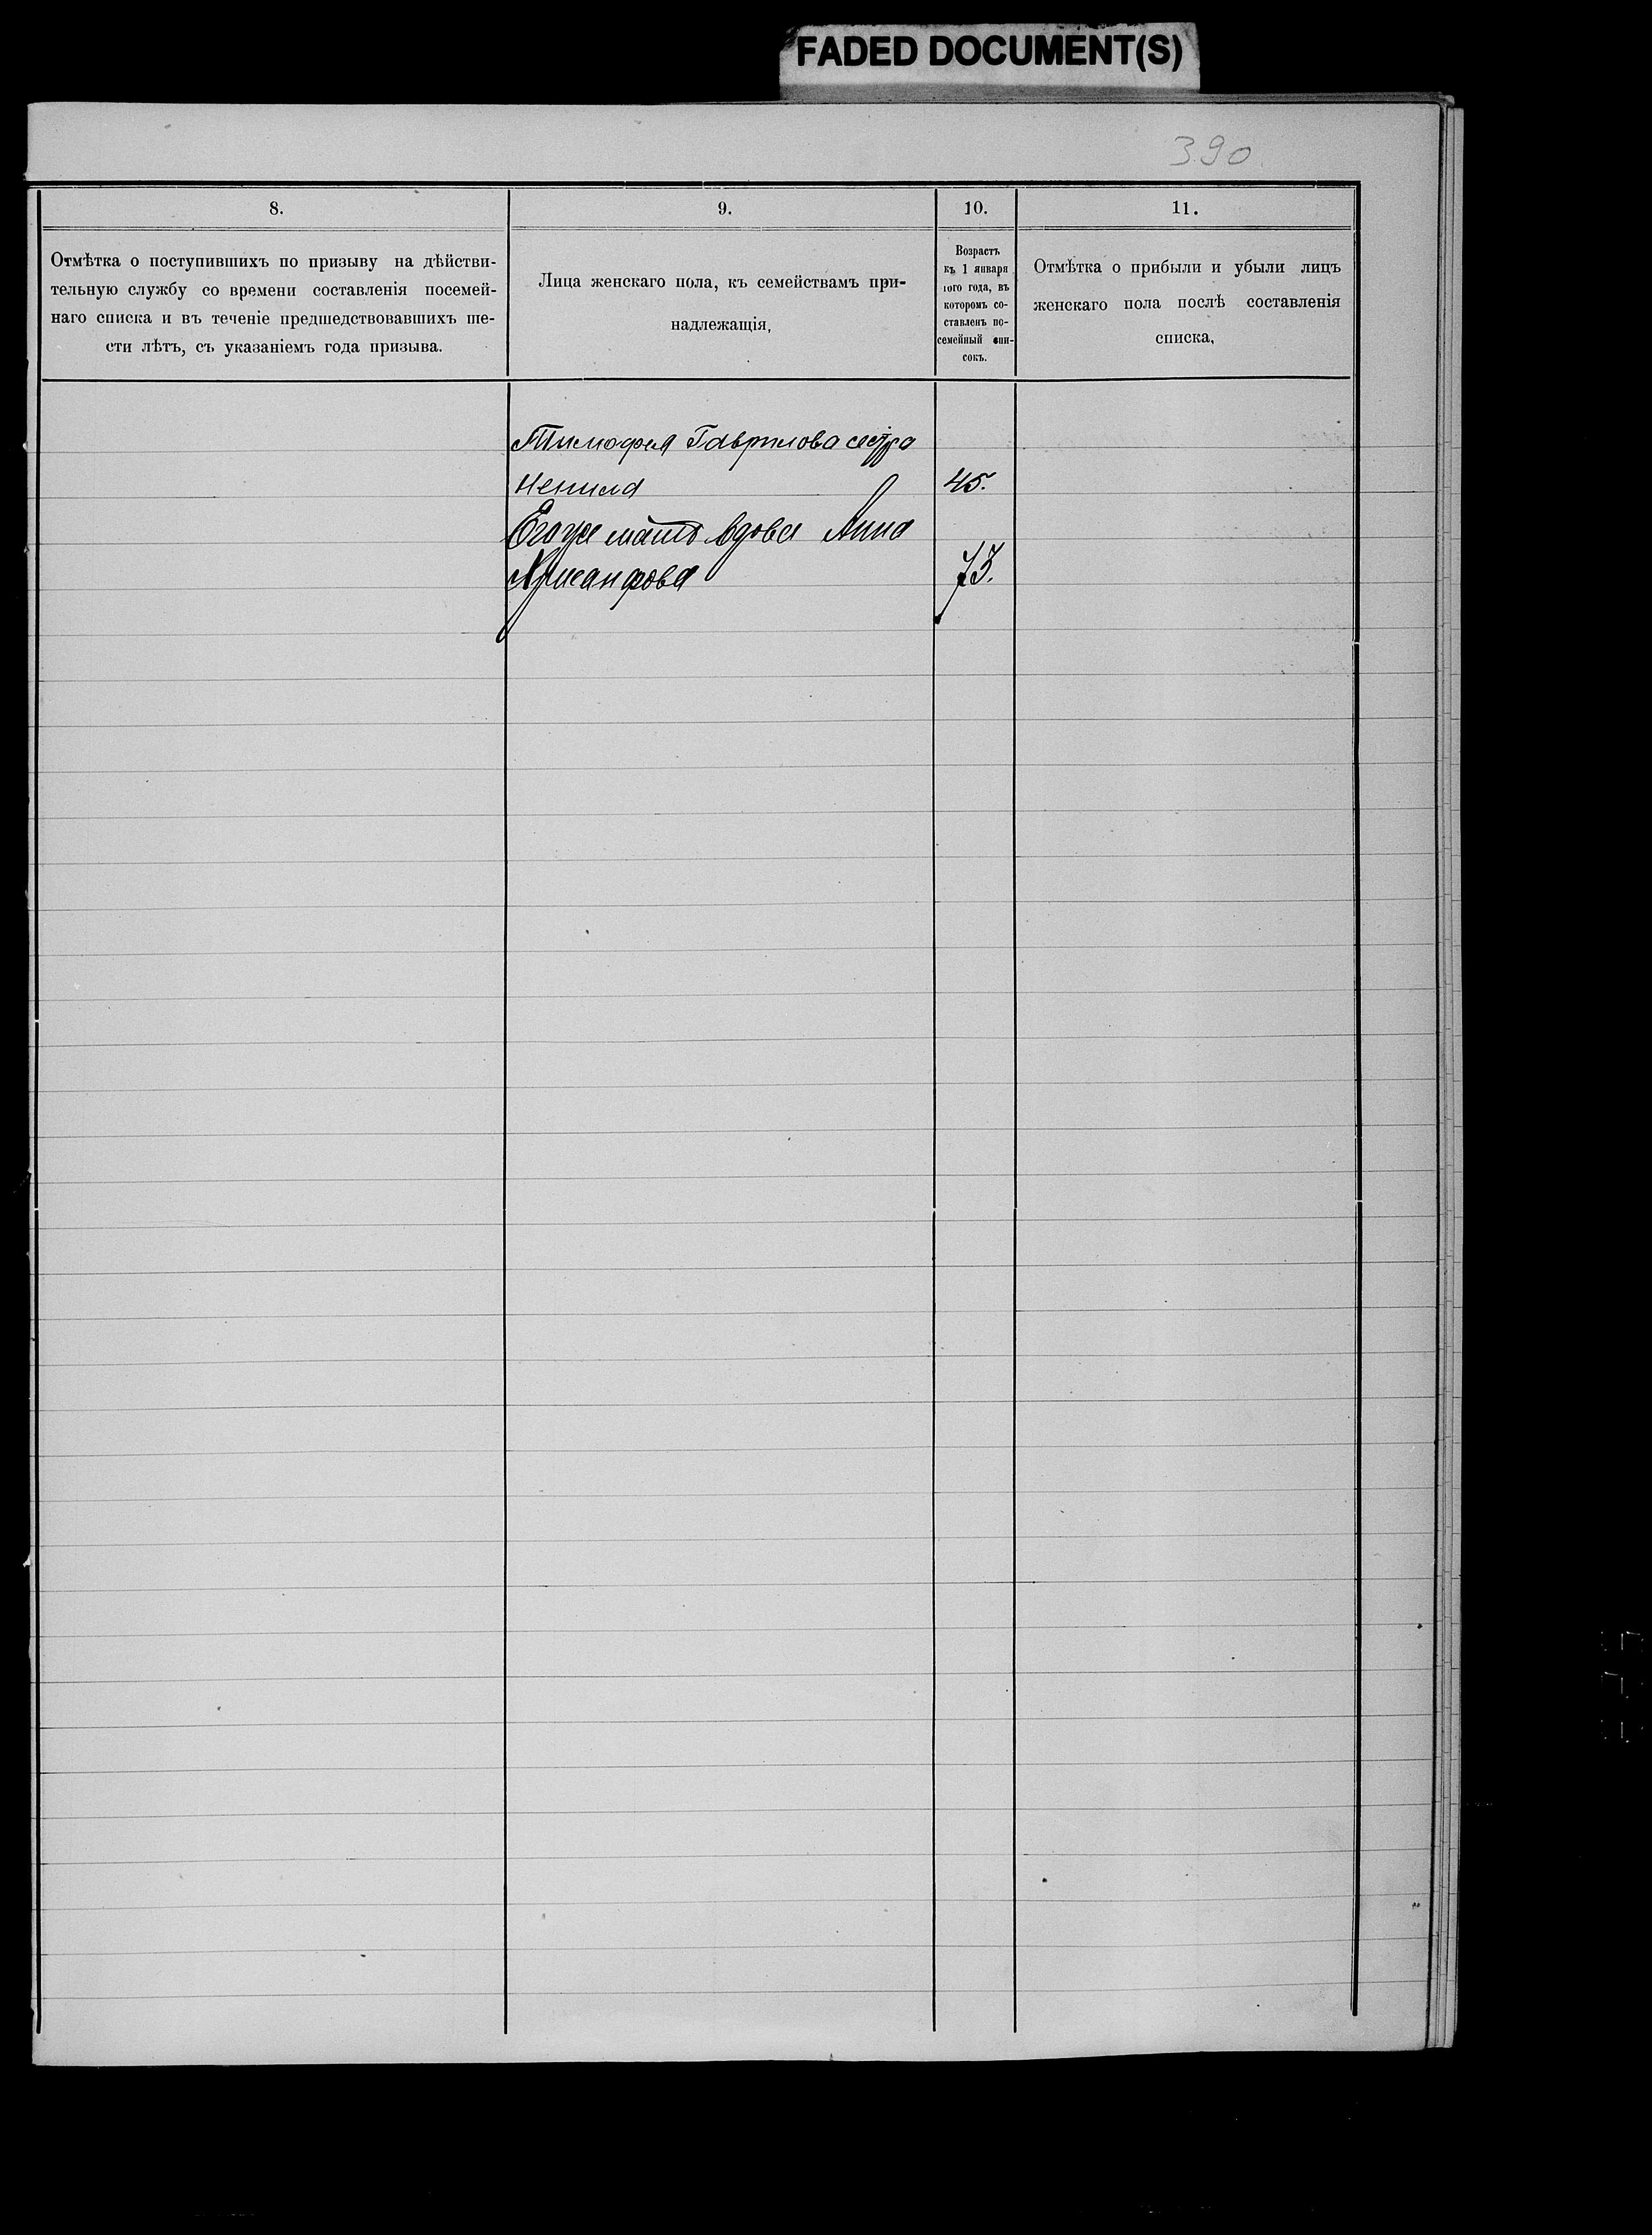 FADED DOCUMENT(S)
390
8.
Отмѣтка о поступившихъ по призыву на дѣйстви-
тельную службу со времени составленія посемей-
наго списка и въ теченіе предшедствовавшихъ ше-
сти лѣтъ, съ указаніемъ года призыва.
9.
Лица женскаго пола, къ семействамъ при-
надлежащія,
10.
Возрастъ
къ 1 января
того года, въ
которомъ со-
ставленъ по-
семейный спи-
сокъ.
11.
Отмѣтка о прибыли и убыли лицъ
женскаго пола послѣ составленія
списка,
Тимофея Гаврилова сестра
Ненила 45.
Егоже мать вдова Анна
Хрисанфова 73.